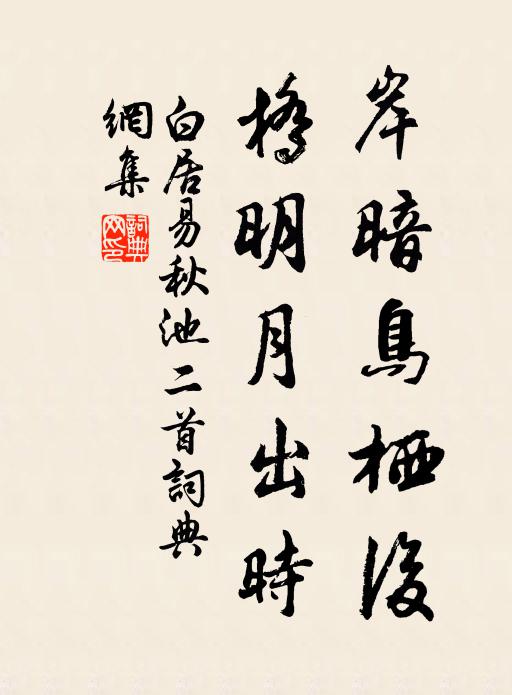 岸暗鳥栖後
橋明月出時
白居易秋池二首詞典
網集
詞典網印